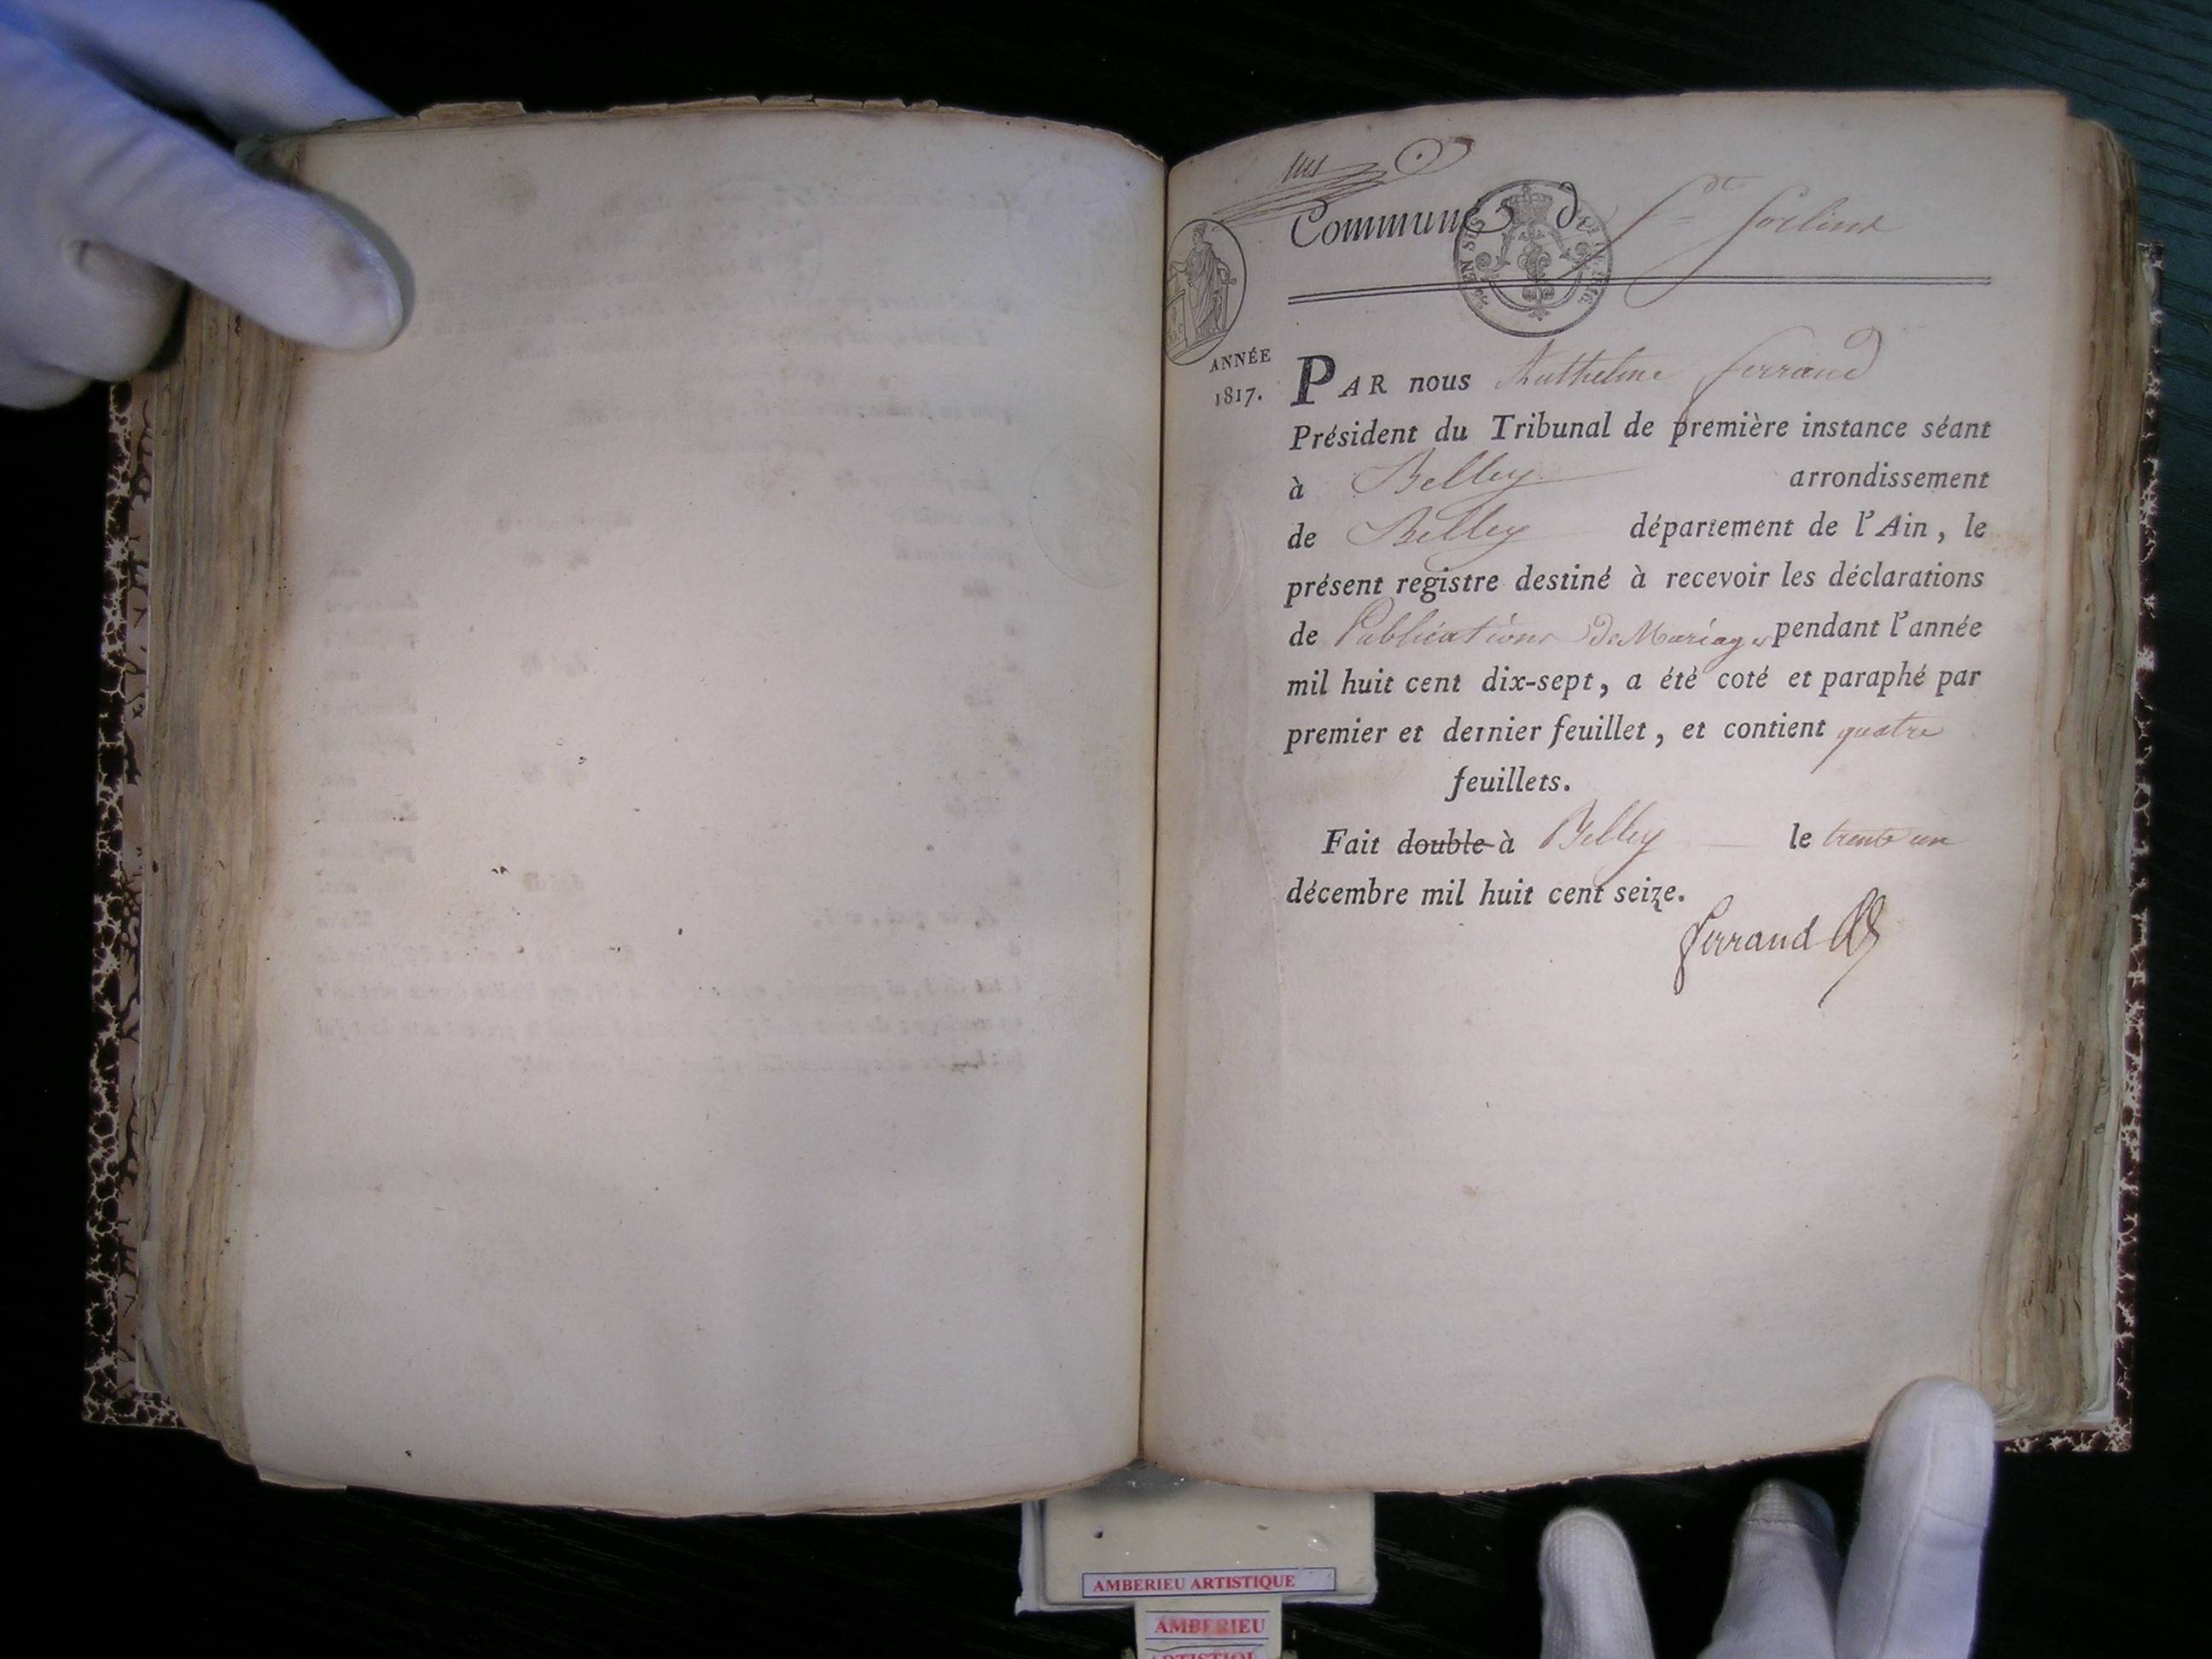 Commune de Ste Sorline
ANNÉE
1817.
PAR nous Anthelme Ferrand
Président du Tribunal de première instance séant
à Belley arrondissement
de Belley département de l'Ain, le
présent registre destiné à recevoir les déclarations
de Publications de Mariages pendant l'année
mil huit cent dix-sept, a été coté et paraphé par
premier et dernier feuillet, et contient quatre
feuillets.
Fait double à Belley le trente un
décembre mil huit cent seize.
Ferrand
AMBERIEU ARTISTIQUE
AMBERIEU
ARTISTIQUE